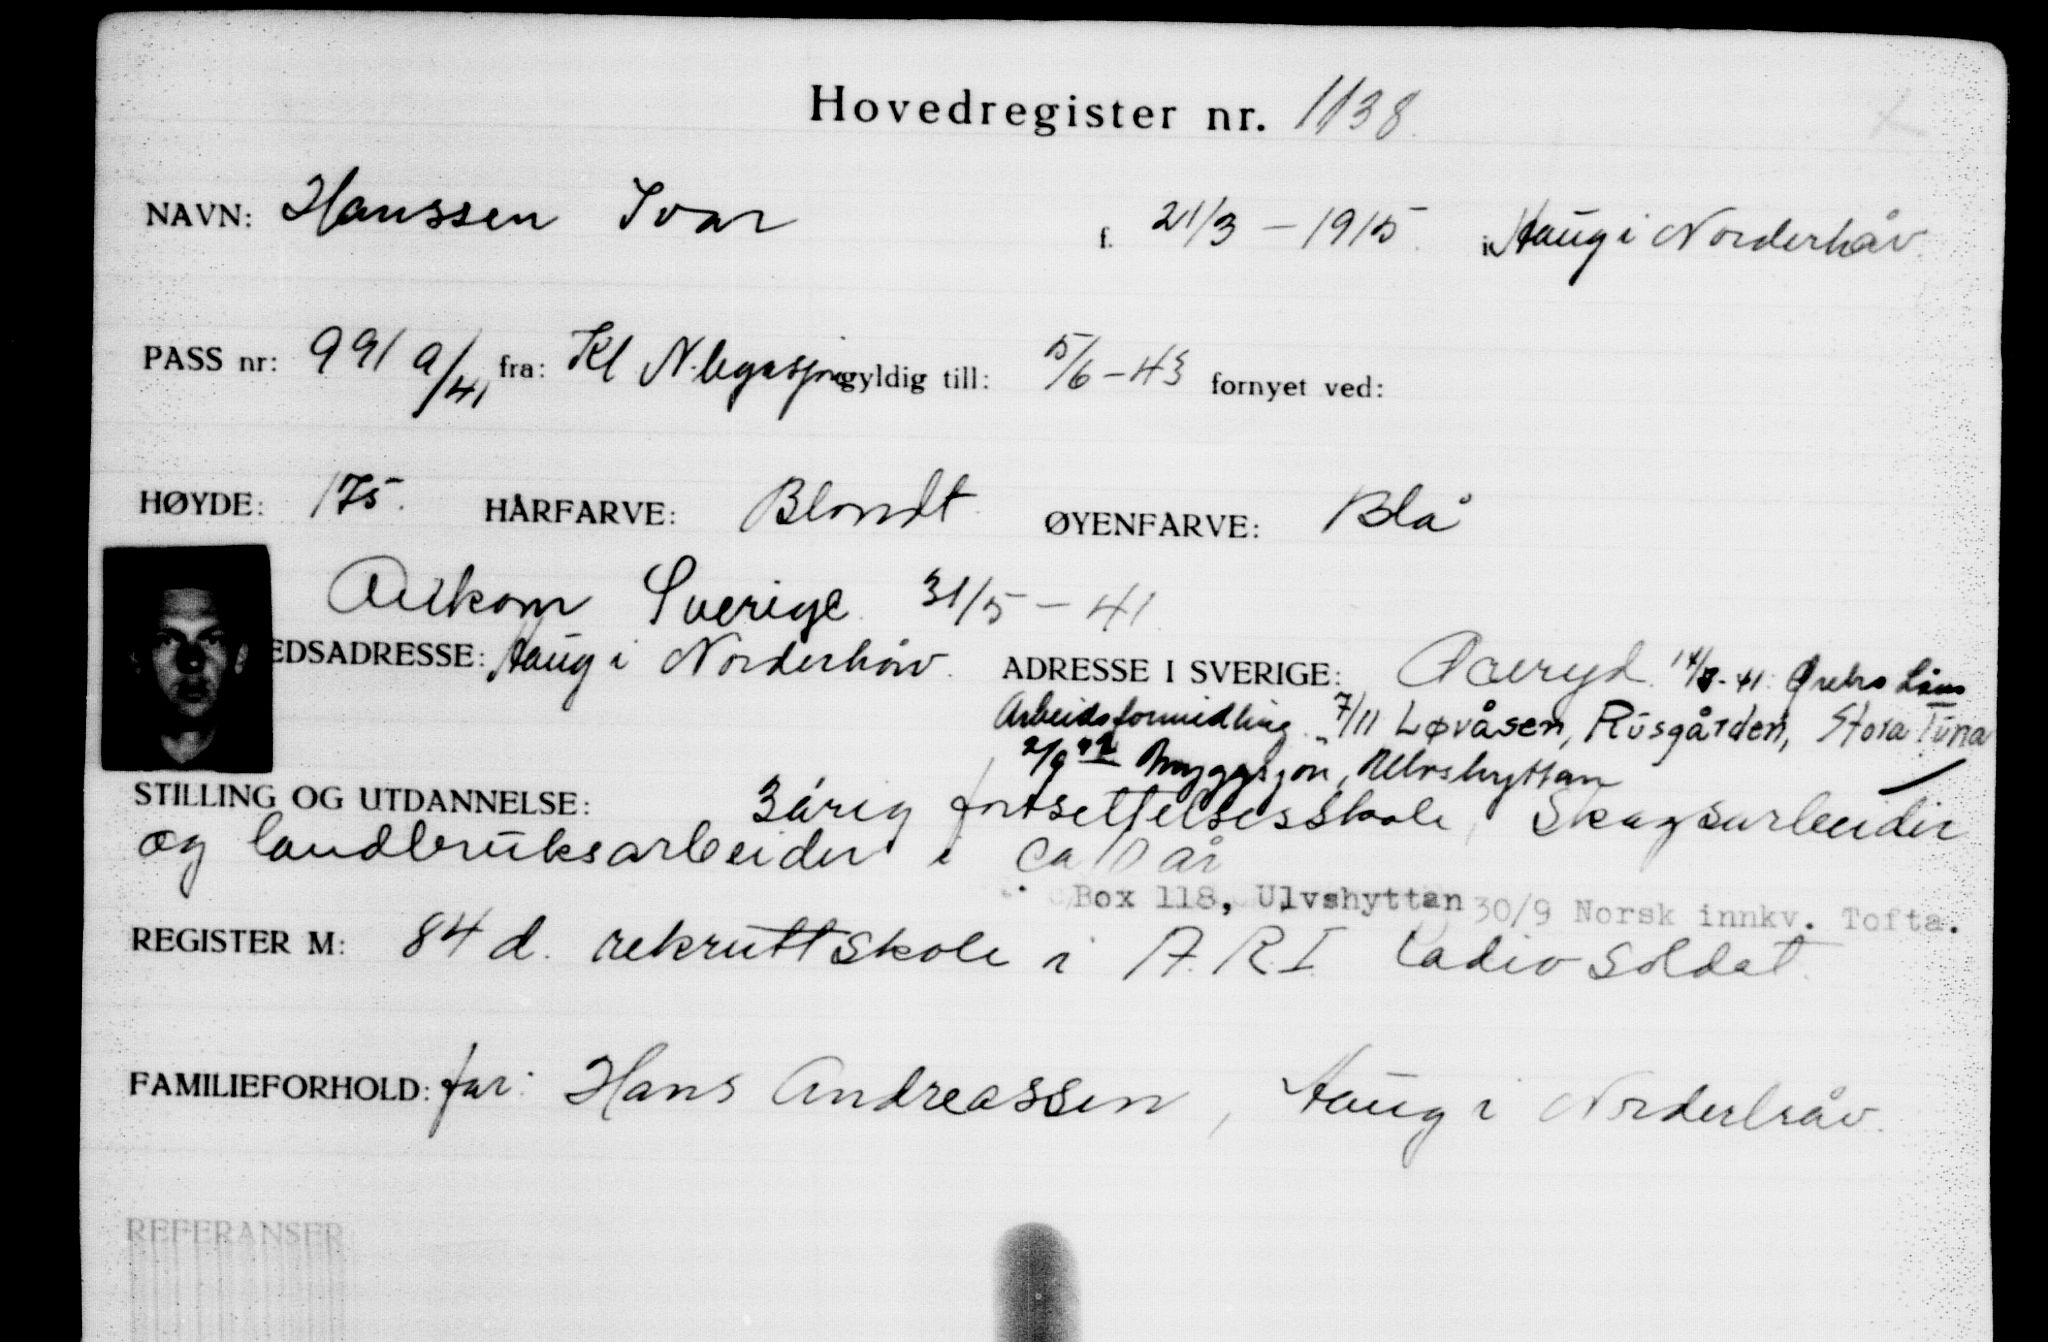 Hovedregister nr. 1138
NAVN: Hanssen Ivar f. 21/3 - 1915 i Haug i Norderhåv
PASS nr: 991 a/41 fra: Kl N. legasjon gyldig till: 5/6 - 43 fornyet ved:
HØYDE: 175. HÅRFARVE: Blondt ØYENFARVE: Blå
Ankom Sverige 31/5 - 41
EDSADRESSE: Haug i Norderhov. ADRESSE I SVERIGE: Øreryd. 14/8-41. Ørebro Läns
Arbeidsformidling. 7/11 Løvåsen, Rusgården, Stora Tuna
2/9 42 Myggsjön, Ulvshyttan
STILLING OG UTDANNELSE: 3årig fortsettelsesskole, Skogsarbeider
og landbruksarbeider i ca 10 år
Box 118, Ulvshyttan 30/9 Norsk innkv. Tofta.
REGISTER M: 84 d. rekruttskole i A.R.I. radiosoldat.
FAMILIEFORHOLD: far: Hans Andreassen, Haug i Norderhåv.
REFERANSER